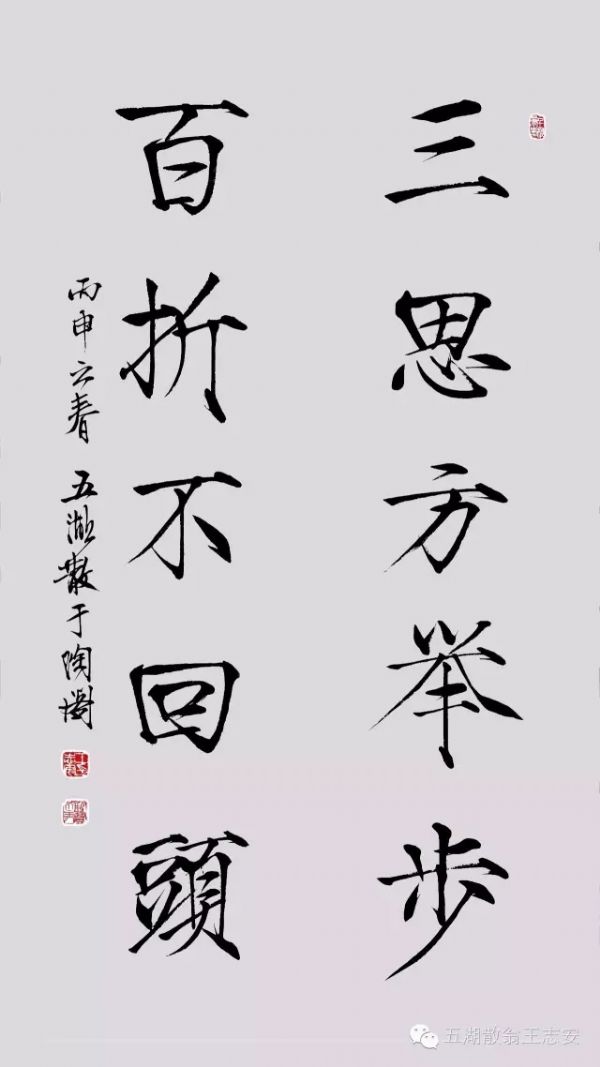 三思方举步
百折不回頭
丙申之春 五湖散于陶
五湖散翁王志安